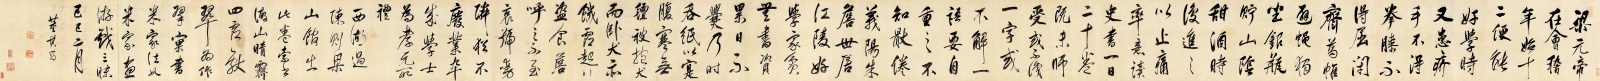 梁元帝
在會稽
年始十
二便能
好學時
又患疥
手不得
拳膝不
得屈閑
齋葛幃
避蠅獨
坐銀甌
貯山陰
甜酒時
復進之
以止痛
率意讀
史書一日
二十卷
既未師
受或不識
一字或
不解一
語要自
重之不
知厭倦
義陽朱
詹世居
江陵好
學家貧
無資
累日不
爨乃時
吞紙以寔
腹寒無
氈被抱犬
而臥犬亦
饑虛起行
盜食
呼之不至
哀號動
隣猶不
廢業卒
成學士
為孝元所
禮
西湖
山館
此卷素
湖山晴霽
翠為作
窠書
米家法以
米家畫
游戲三昧
己巳二月
董其昌